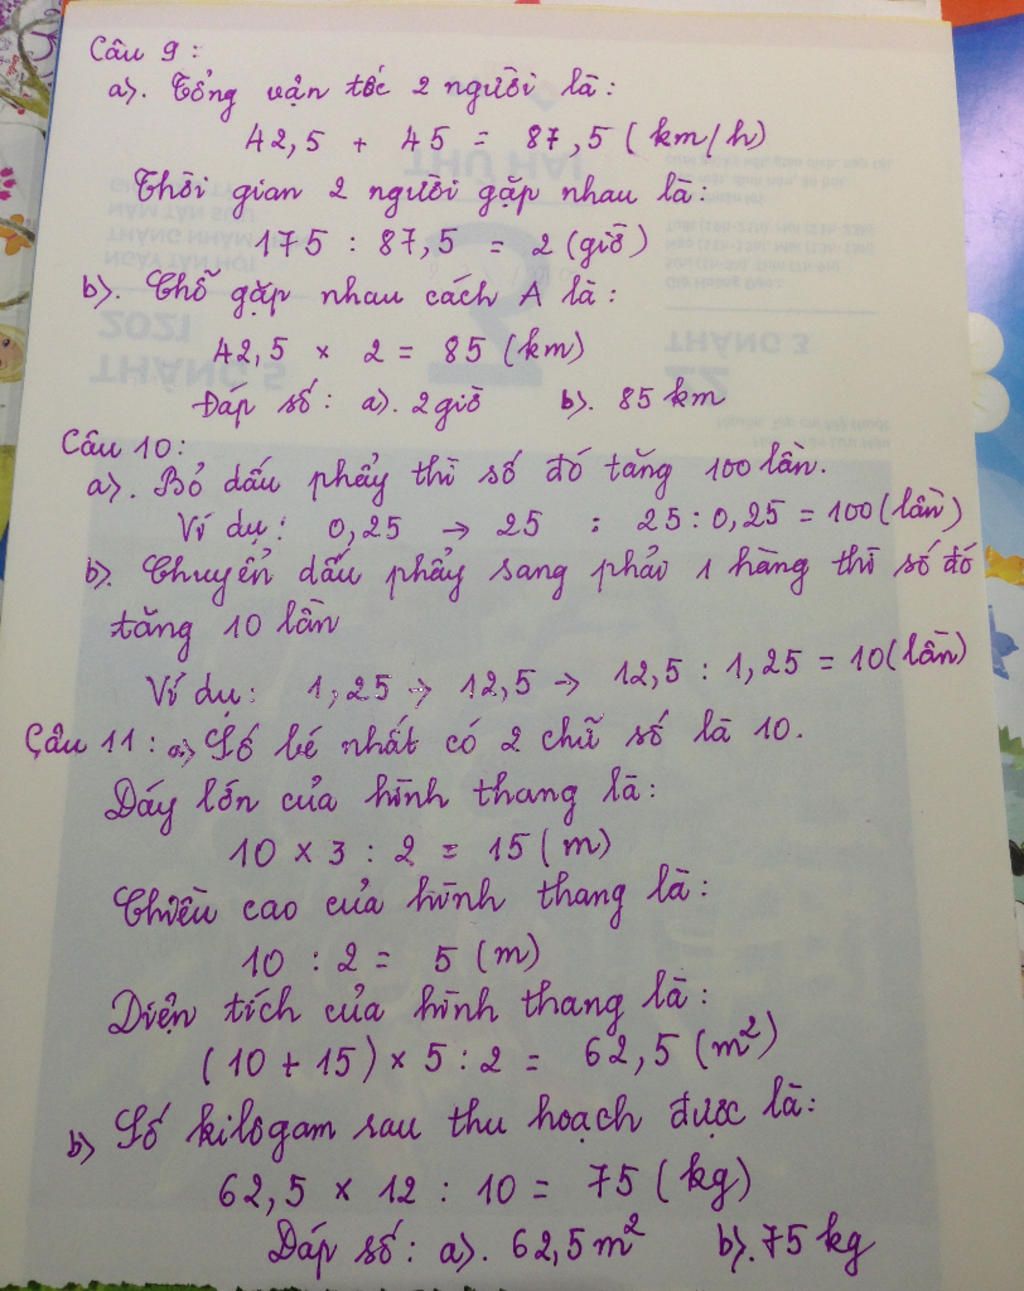 Câu 9 :
a). Tổng vận tốc 2 người là :
42,5 + 45 = 87,5 ( km/h)
Thời gian 2 người gặp nhau là :
175 : 87,5 = 2 (giờ)
b). Chỗ gặp nhau cách A là :
42,5 × 2 = 85 (km)
Đáp số : a). 2 giờ b). 85 km
Câu 10 :
a). Bỏ dấu phẩy thì số đó tăng 100 lần.
Ví dụ : 0,25 → 25 : 25 : 0,25 = 100 (lần)
b). Chuyển dấu phẩy sang phải 1 hàng thì số đó
tăng 10 lần
Ví dụ : 1,25 → 12,5 → 12,5 : 1,25 = 10 (lần)
Câu 11 : a) Số bé nhất có 2 chữ số là 10.
Đáy lớn của hình thang là :
10 × 3 : 2 = 15 ( m)
Chiều cao của hình thang là :
10 : 2 = 5 (m)
Diện tích của hình thang là :
( 10 + 15 ) × 5 : 2 = 62,5 (m²)
b) Số kilôgam sau thu hoạch được là :
62,5 × 12 : 10 = 75 ( kg)
Đáp số : a). 62,5 m² b). 75 kg